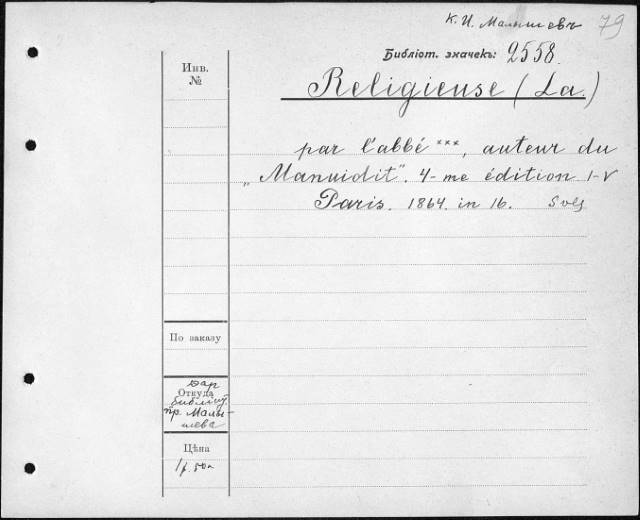 К. И. Малышевъ 79
Библіот. значекъ: 2558.
Инв. №
Religieuse (La.)
par l'abbé ***, auteur du
„Manuidit". 4-me édition I-V
Paris. 1864. in 16. 5 vls
По заказу
Откуда
Даръ
библіот.
пр. Малы-
шева
Цѣна
1 р. 50 к